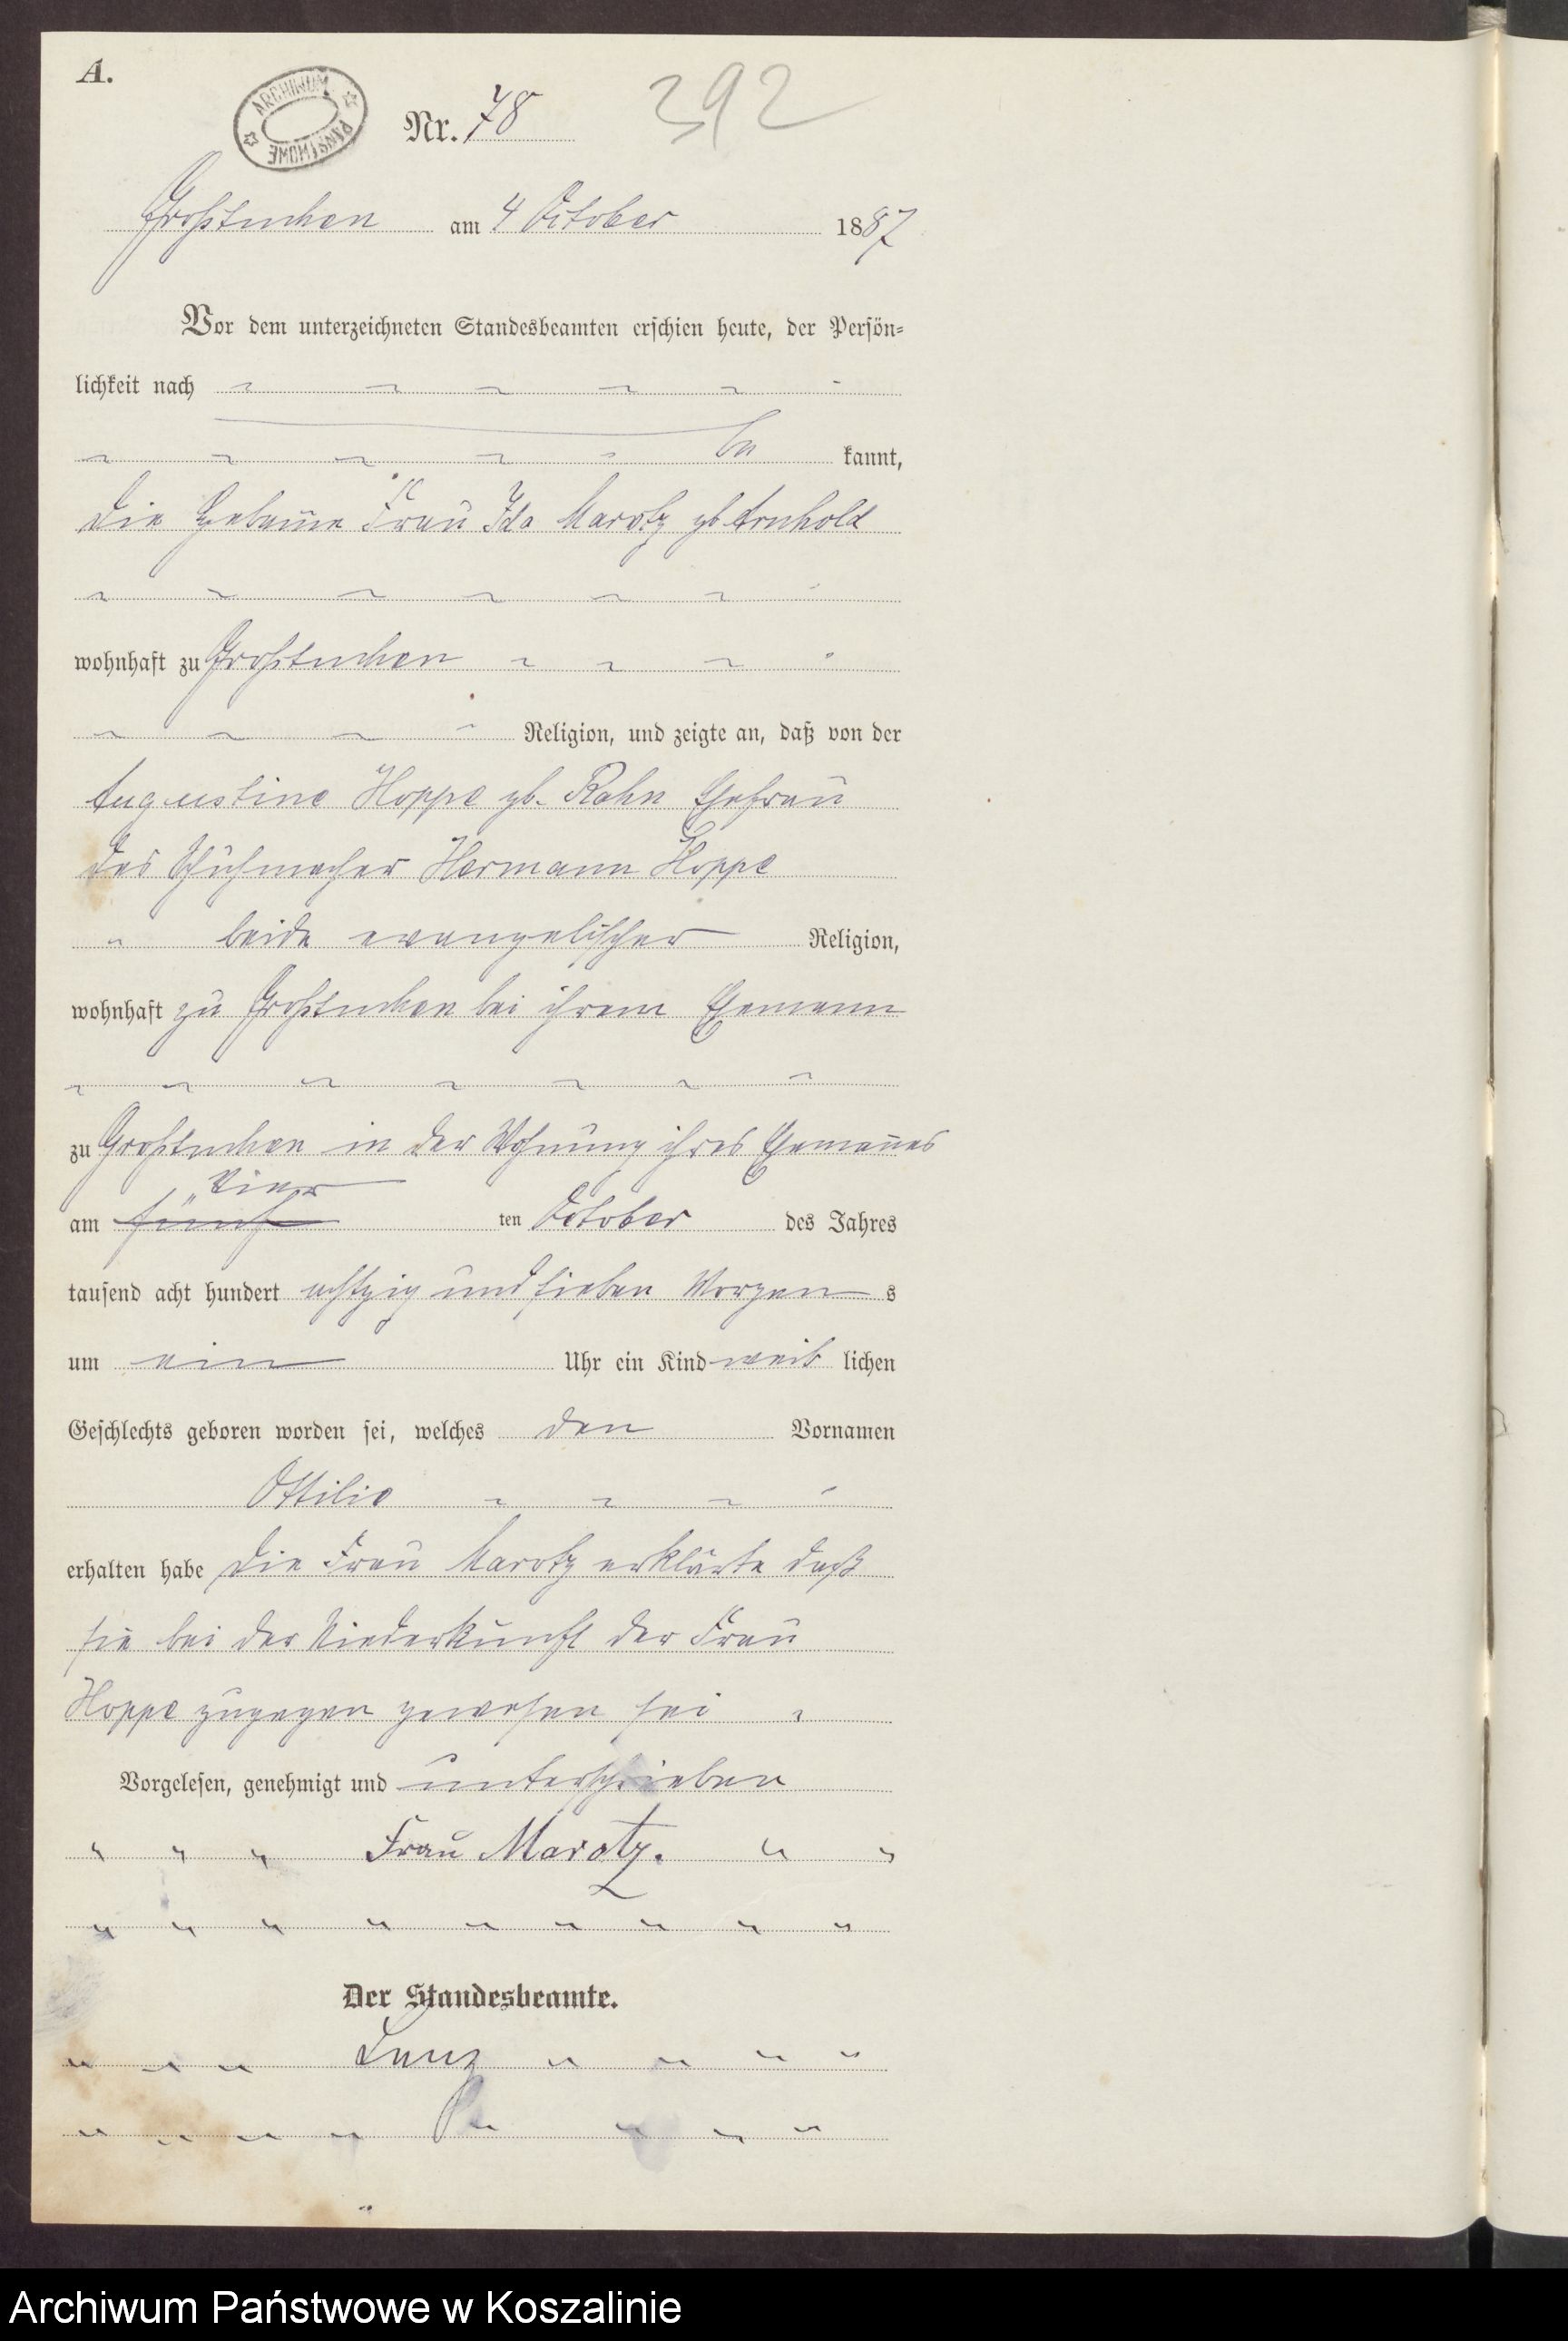 A.
ARCHIWUM PAŃSTWOWE
Nr. 78
392
Großtuchen am 4 October 1887
Vor dem unterzeichneten Standesbeamten erschien heute, der Persön-
lichkeit nach
be kannt,
die Hebamme Frau Ida Marotz gb Arnhold
wohnhaft zu Großtuchen
Religion, und zeigte an, daß von der
Augustine Hoppe gb. Rahn Ehefrau
des Schuhmacher Hermann Hoppe
beide evangelischer Religion,
wohnhaft zu Großtuchen bei ihrem Ehemann
zu Großtuchen in der Wohnung ihres Ehemannes
vier
am fünf ten October des Jahres
tausend acht hundert achtzig und sieben Morgen s
um ein Uhr ein Kind weib lichen
Geschlechts geboren worden sei, welches den Vornamen
Ottilie
erhalten habe die Frau Marotz erklärte daß
sie bei der Niederkunft der Frau
Hoppe zugegen gewesen sei
Vorgelesen, genehmigt und unterschrieben
Frau Marotz.
Der Standesbeamte.
Archiwum Państwowe w Koszalinie